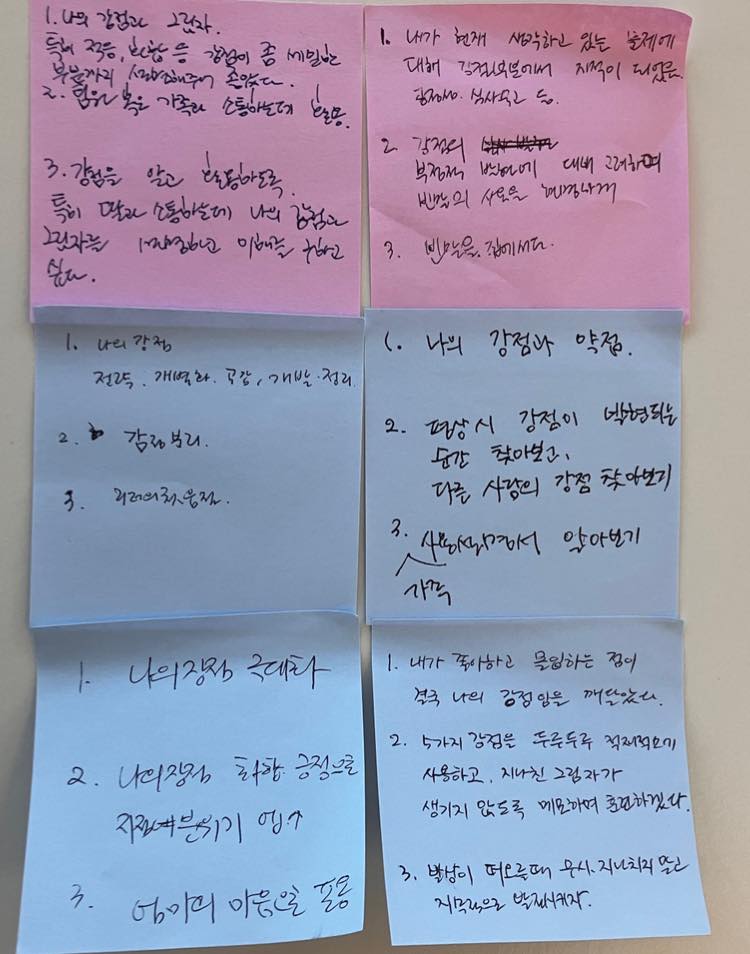 1. 나의 강점과 그림자.
특히 적응, 화합 등 강점이 좀 세밀한
부분까지 설명해주어 좋았다.
2. 팀원 혹은 가족과 소통하는데 활용.
3. 강점을 알고 활동하도록.
특히 딸과 소통하는데 나의 강점과
그림자를 설명하고 이해를 구하고
싶다.
1. 내가 현재 생각하고 있는 문제에
대해 강점 에서 지적이 되었음.
등.
2. 강점의
부정적 발현에 대해 고려하며
반말의 사용을
3. 반말을 집에서다.
1. 나의 강점
전략, 개별화. 공감, 개발. 정리
2. 감정분리.
3.
1. 나의 강점과 약점.
2. 평상시 강점이 발현되는
순간 찾아보고,
다른 사람의 강점 찾아보기
3. 알아보기
가족
1. 나의장점 극대화
2. 나의장점 화합 긍정으로
분위기 업↑
3. 엄마의 마음으로 포용
1. 내가 좋아하고 몰입하는 점이
결국 나의 강점임을 깨달았다.
2. 5가지 강점은 두루두루 적재적소에
사용하고, 지나친 그림자가
생기지 않도록 메모하며 표현하겠다.
3. 발상이 떠오를때 무시. 지나치지 말고
지속적으로 발전시키자.